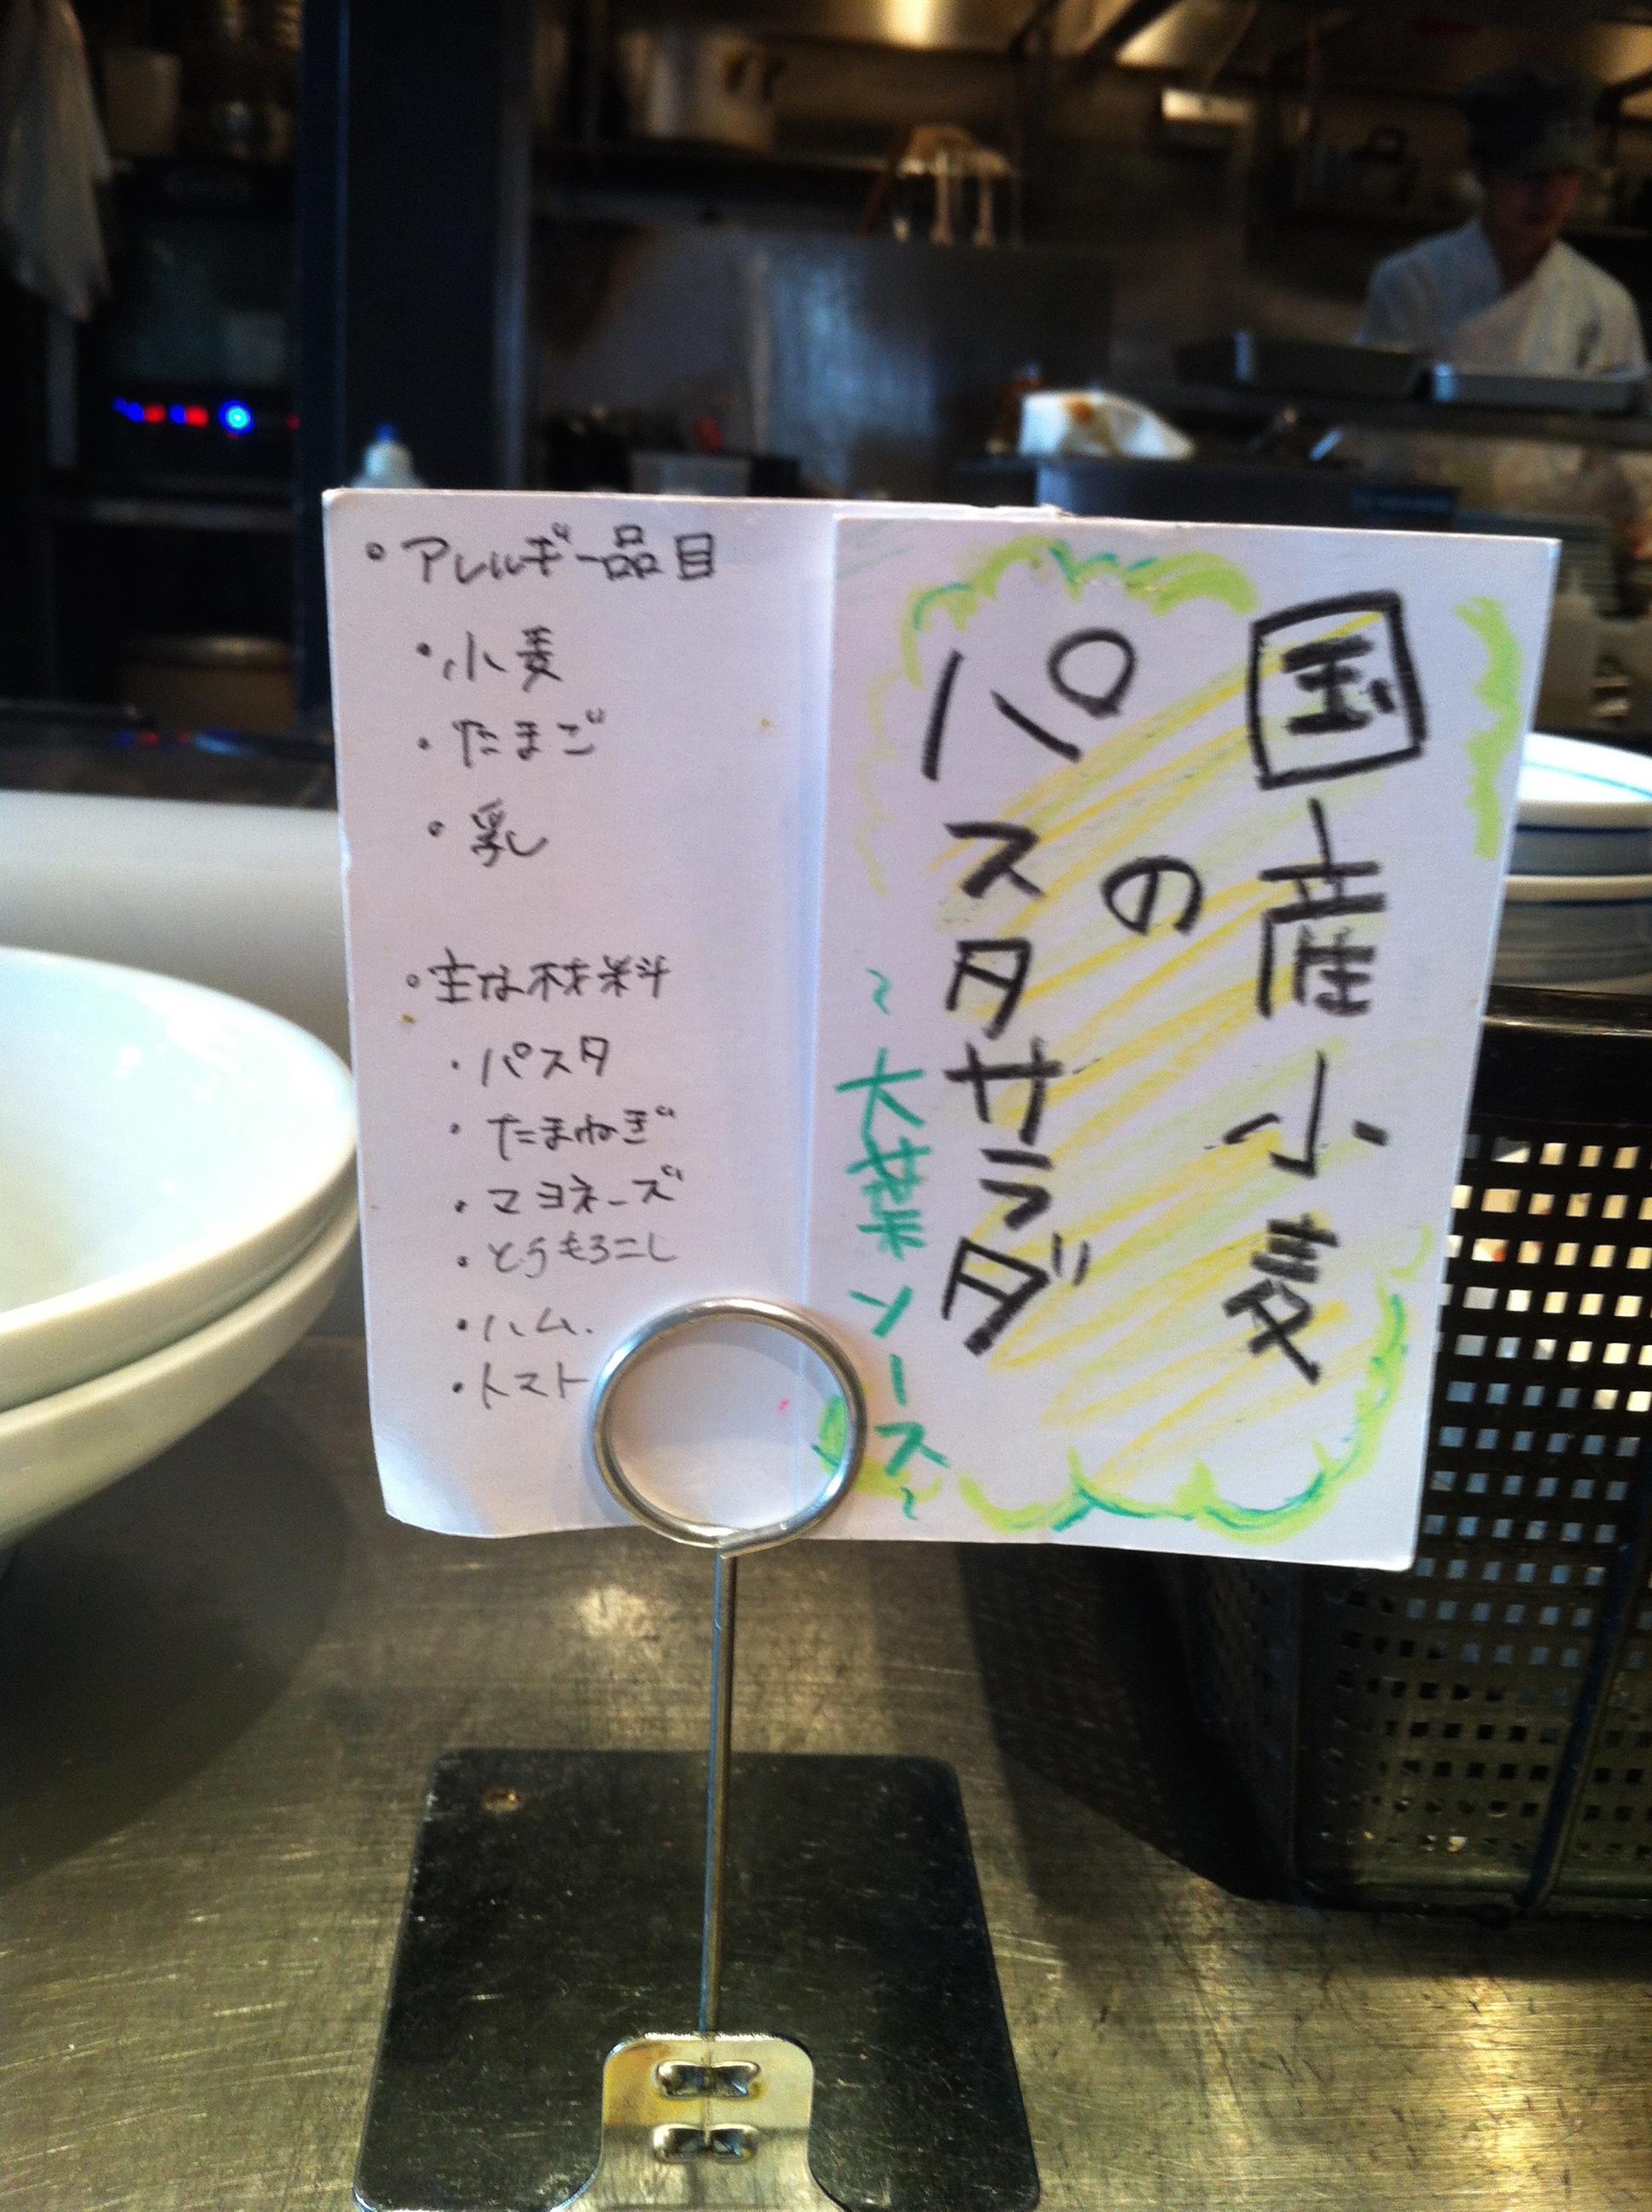 国産小麦
の
パスタサラダ
～大葉ソース～
・アレルギー品目
・小麦
・たまご
・乳
・主な材料
・パスタ
・たまねぎ
・マヨネーズ
・とうもろこし
・ハム.
・トマト